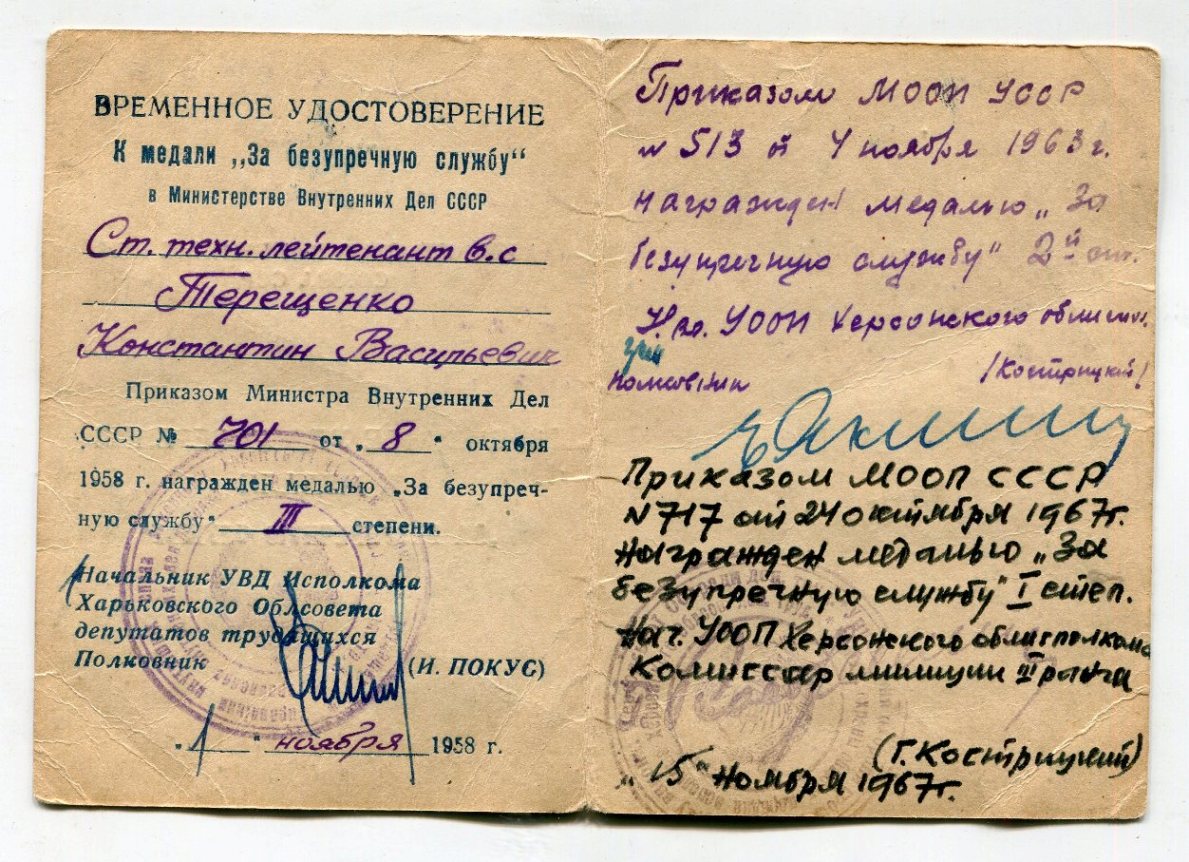 ВРЕМЕННОЕ УДОСТОВЕРЕНИЕ
К медали „За безупречную службу“
в Министерстве Внутренних Дел СССР
Ст. техн. лейтенант в.с
Терещенко
Константин Васильевич
Приказом Министра Внутренних Дел
СССР № 701 от „8“ октября
1958 г. награжден медалью „За безупреч-
ную службу“ III степени.
Начальник УВД Исполкома
Харьковского Облсовета
депутатов трудящихся
Полковник (И. ПОКУС)
„1“ ноября 1958 г.
Приказом МООП УССР
№ 513 от 4 ноября 1963 г.
награжден медалью „За
безупречную службу“ 2й ст.
УООП Херсонского
полковник /Кострицкий/
Приказом МООП СССР
№ 717 от 24 октября 1967г.
награжден медалью „За
безупречную службу“ I степ.
Нач. УООП Херсонского облисполкома
Комиссар милиции III ранга
(Г. Кострицкий)
„15“ ноября 1967г.